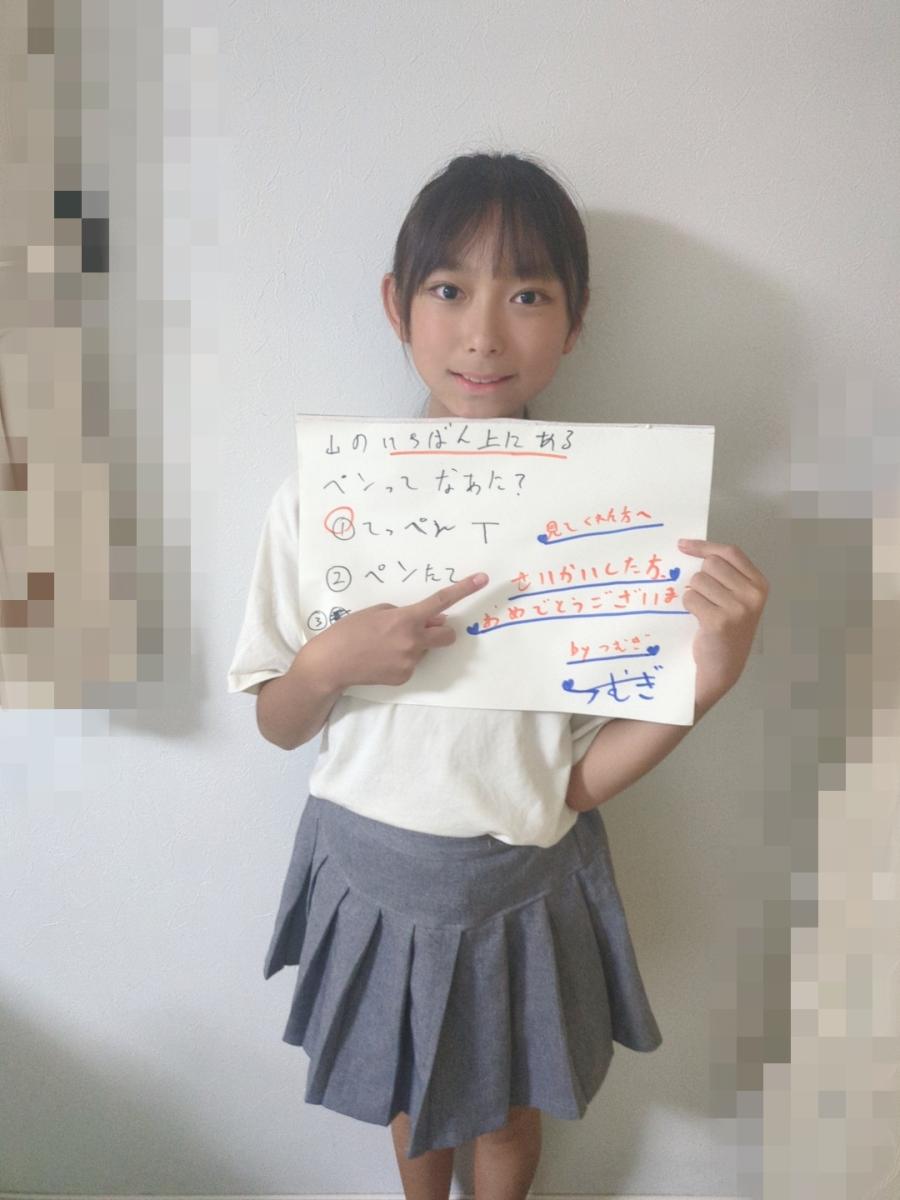 山のいちばん上にある
ペンってなあに？
①てっぺん
②ペンたて
③
見てくれた方へ
せいかいした方、
おめでとうございま
by つむぎ
つむぎ